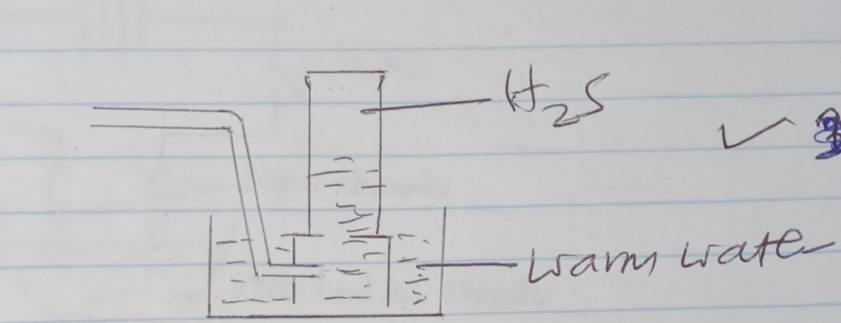 H₂S
warm water